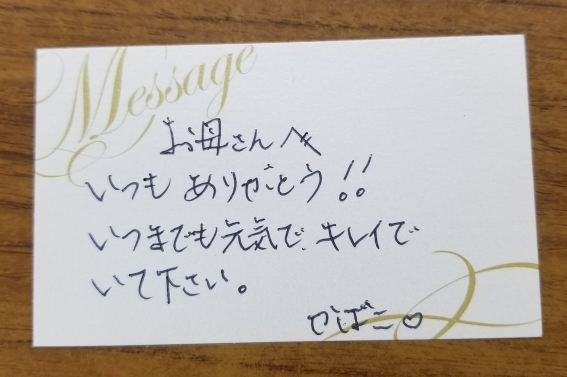 Message
お母さんへ
いつもありがとう!!
いつまでも元気で、キレイで
いて下さい。
やばこ♡